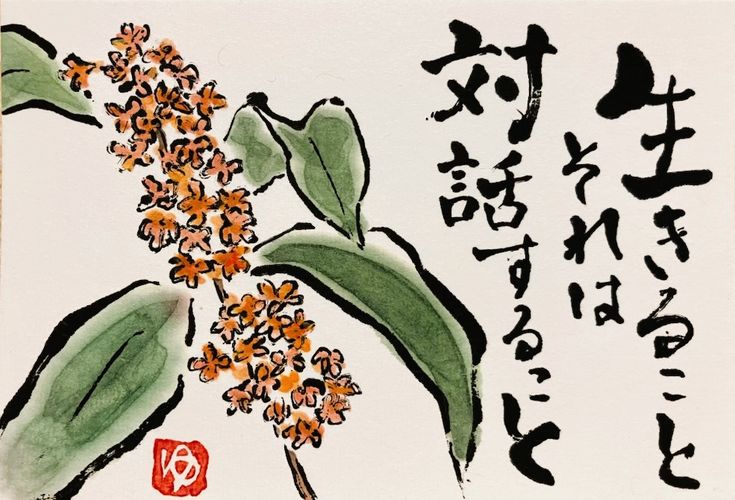 生きること
それは
対話すること
ゆ